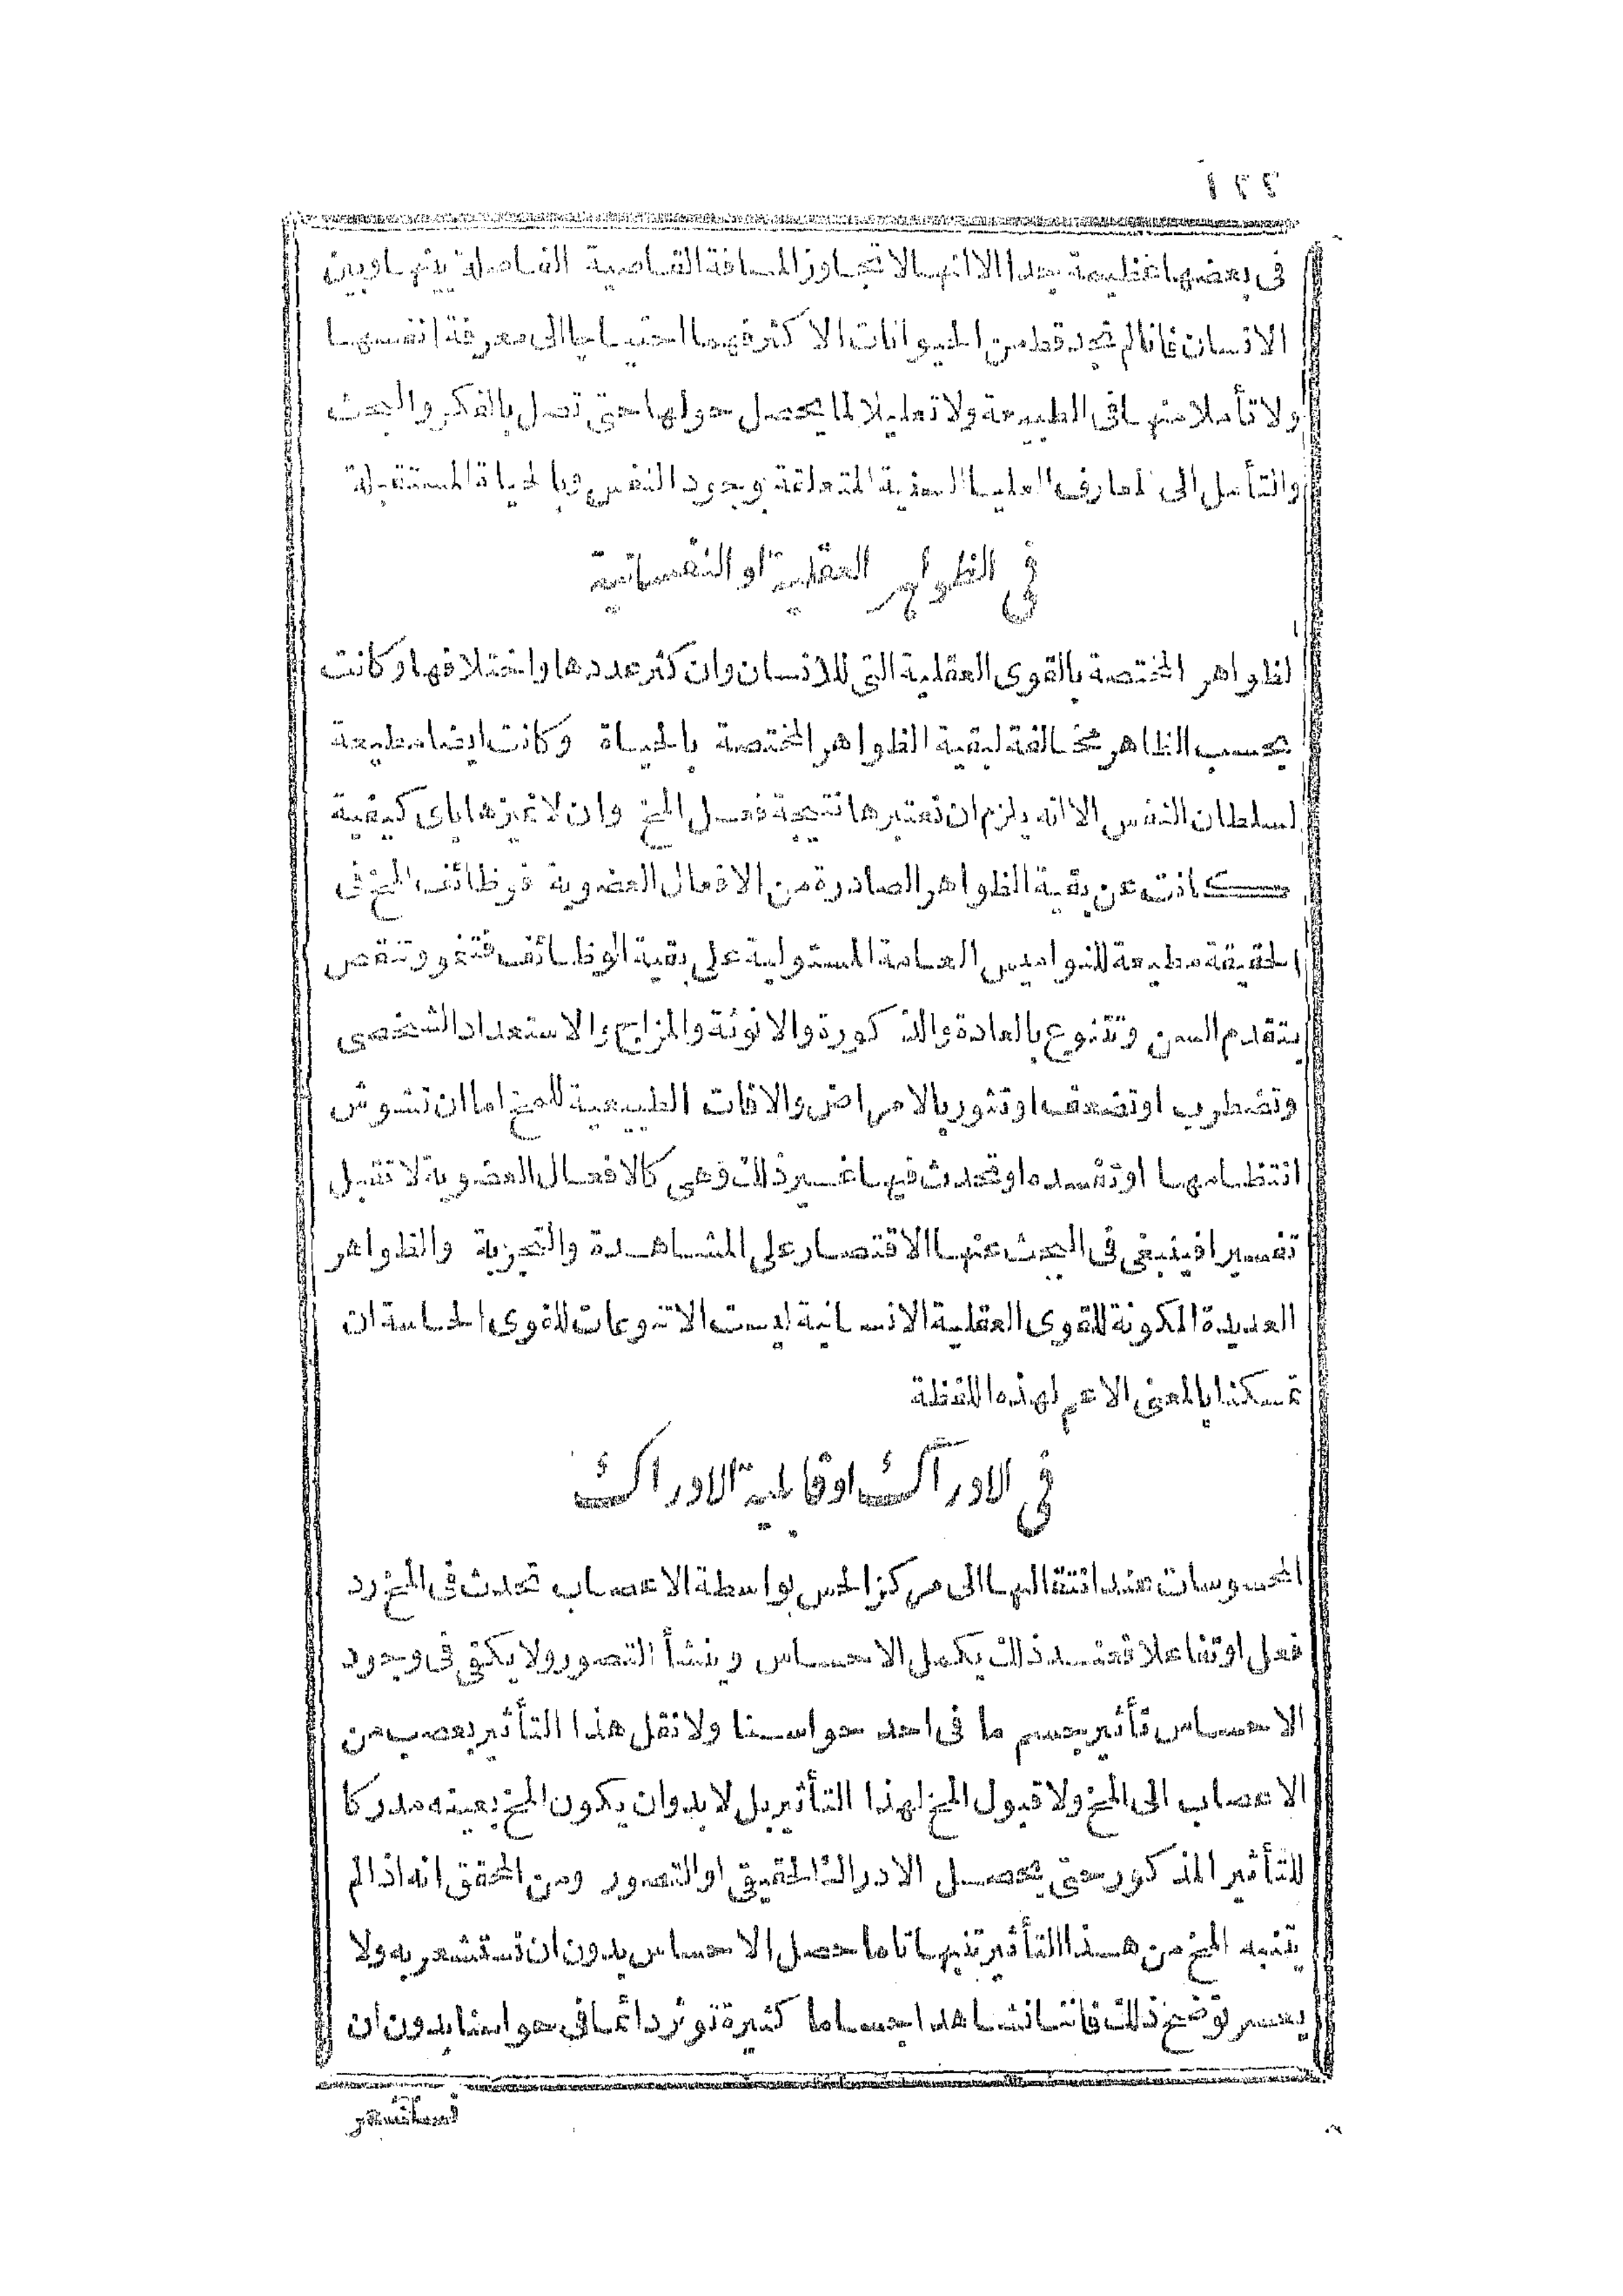 ٢٢٤
فى بعضها عظيمة جدا الا انها لا تجاوز المسافة القاصية الفاصلة بينها وبين
الانسان فانا لم نجد قط من الحيوانات الاكثر فهما احتياجا الى معرفة انفسها
ولا تأملا منها فى الطبيعة ولا تعليلا لما يحصل حولها حتى تصل بالفكر والبحث
والتأمل الى المعارف العليا المتعلقة بوجود النفس وبالحياة المستقبلة
فى الظواهر العقلية او النفسانية
الظواهر المختصة بالقوى العقلية التى للانسان وان كثر عددها واختلافها وكانت
بحسب الظاهر مخالفة لبقية الظواهر المختصة بالحياة وكانت ايضا مطيعة
لسلطان النفس الا انه يلزم ان نعتبرها نتيجة فعل المخ وان لا نميزها باى كيفية
كانت عن بقية الظواهر الصادرة من الافعال العضوية فوظائف المخ فى
الحقيقة مطيعة للنواميس العامة المستولية على بقية الوظائف فتنمو وتنقص
بتقدم السن وتتنوع بالعادة والذكورة والانوثة والمزاج والاستعداد الشخصى
وتضطرب او تضعف او تثور بالامراض والافات الطبيعية للمخ اما ان تشوش
انتظامها او تفسده او تحدث فيها غير ذلك فهى كالافعال العضوية لا تقبل
تفسيرا فينبغى فى البحث عنها الاقتصار على المشاهدة والتجربة والظواهر
العديدة المكونة للقوى العقلية الانسانية ليست الا تنوعات للقوى الحاسة ان
تمسكنا بالمعنى الاعم لهذه اللفظة
فى الادراك او قابلية الادراك
المحسوسات عند انتقالها الى مركز الحس بواسطة الاعصاب تحدث فى المخ رد
فعل او تفاعلا فعند ذلك يكمل الاحساس وينشأ التصور ولا يكفى فى وجود
الاحساس تأثير جسم ما فى احد حواسنا ولا نقل هذا التأثير بعصب من
الاعصاب الى المخ ولا قبول المخ لهذا التأثير بل لا بد وان يكون المخ بعينه مدركا
للتأثير المذكور حتى يحصل الادراك الحقيقى او التصور ومن المحقق انه اذا لم
يتنبه المخ من هذا التأثير تنبها تاما حصل الاحساس بدون ان نستشعر به ولا
يعسر توضيح ذلك فاننا نشاهد اجساما كثيرة تؤثر دائما فى حواسنا بدون ان
نستشعر